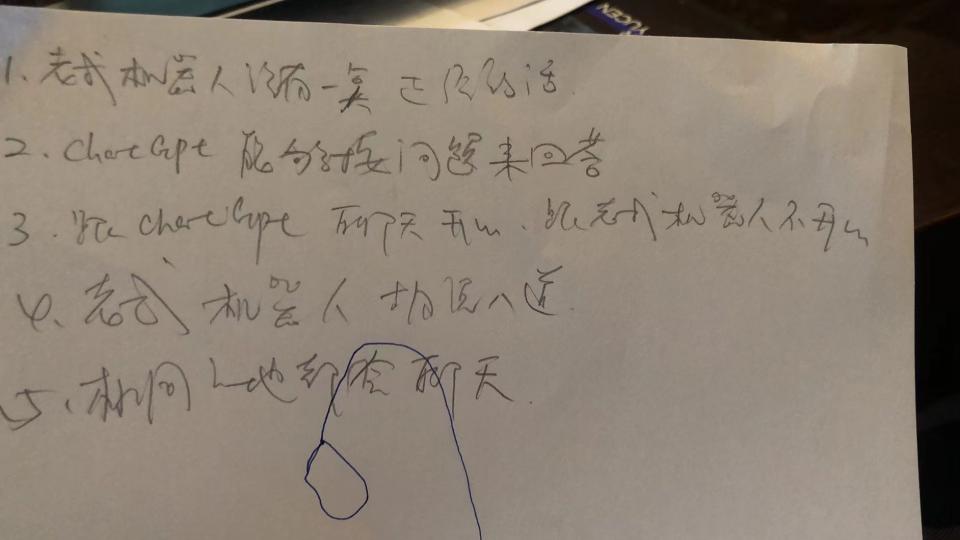 YUCEN
1. 老式机器人没有一句正经的话.
2. ChatGpt 能够按问题来回答
3. 跟 ChatGpt 聊天开心、跟老式机器人不开心
4、老式机器人胡说八道.
5、相同上也都会聊天.